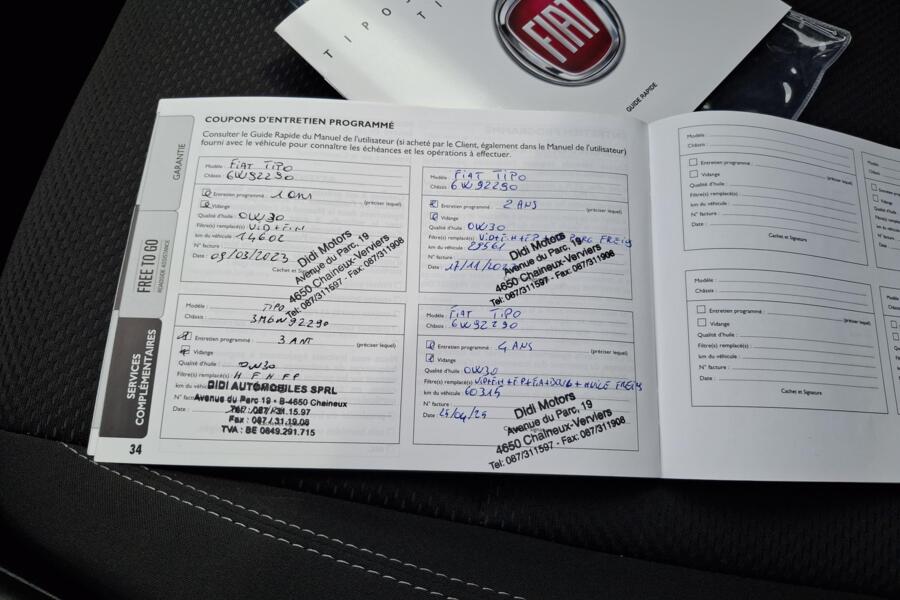 TIPO
FIAT
GUIDE RAPIDE
COUPONS D'ENTRETIEN PROGRAMMÉ
Consulter le Guide Rapide du Manuel de l'utilisateur (si acheté par le Client, également dans le Manuel de l'utilisateur)
fourni avec le véhicule pour connaître les échéances et les opérations à effectuer.
GARANTIE
FREE TO GO
ROADSIDE ASSISTANCE
SERVICES
COMPLÉMENTAIRES
34
Modèle : FIAT TIPO
Châssis : 6W92290
Entretien programmé : 1 ans (préciser lequel)
Vidange
Qualité d'huile : 0W30
Filtre(s) remplacé(s) :
km du véhicule : 14602
N° facture :
Date : 09/03/2023
Cachet et
Didi Motors
Avenue du Parc, 19
4650 Chaineux-Verviers
Tel: 087/311597 - Fax: 087/311908
Modèle : FIAT TIPO
Châssis : 6W92290
Entretien programmé : 2 ANS (préciser lequel)
Vidange
Qualité d'huile : 0W30
Filtre(s) remplacé(s) :
km du véhicule :
N° facture :
Date : 17/11/
Didi Motors
Avenue du Parc, 19
4650 Chaineux-Verviers
Tel: 087/311597 - Fax: 087/311908
Modèle : TIPO
Châssis : 3M6W92290
Entretien programmé : 3 ANT (préciser lequel)
Vidange
Qualité d'huile : 0W30
Filtre(s) remplacé(s) : H F H FP
km du
N° factu
Date :
DIDI AUTOMOBILES SPRL
Avenue du Parc 19 - B-4650 Chaineux
Tél : 087/31.15.97
Fax : 087/31.19.08
TVA : BE 0849.291.715
Modèle : FIAT TIPO
Châssis : 6W92290
Entretien programmé : 4 ANS (préciser lequel)
Vidange
Qualité d'huile : 0W30
Filtre(s) remplacé(s) : HUILE FREIN
km du véhicule : 60315
N° facture :
Date : 25/04/25
Didi Motors
Avenue du Parc, 19
4650 Chaineux-Verviers
Tel: 087/311597 - Fax: 087/311908
Modèle :
Châssis :
Entretien programmé : (préciser lequel)
Vidange
Qualité d'huile :
Filtre(s) remplacé(s) :
km du véhicule :
N° facture :
Date :
Cachet et Signature
Modèle :
Châssis :
Entretien programmé : (préciser lequel)
Vidange
Qualité d'huile :
Filtre(s) remplacé(s) :
km du véhicule :
N° facture :
Date :
Cachet et Signature